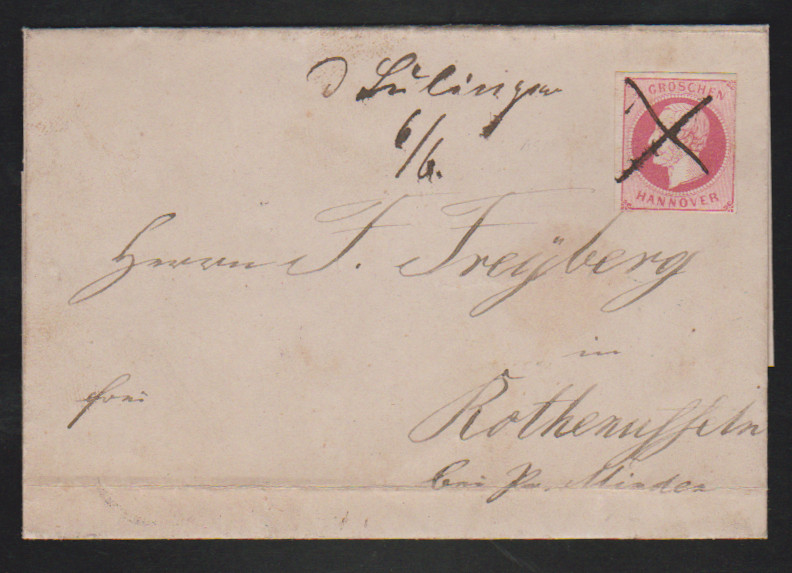 Sulingen
6/6.
GROSCHEN
HANNOVER
Herrn F. Freÿberg
in
frei
Rothenuffeln
bei Pr. Minden